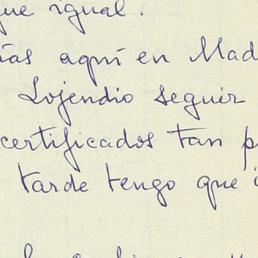 que igual.
ías aquí en Mad
Lojendio seguir
certificados tan p
tarde tengo que i